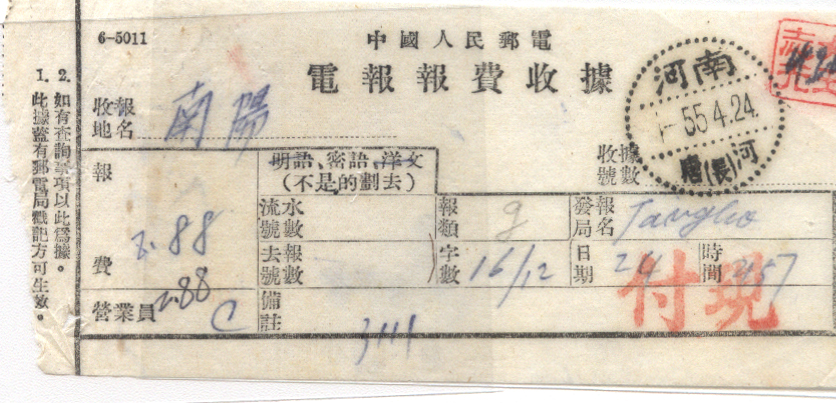 6-5011
中國人民郵電
電報報費收據
1. 此據蓋有郵電局戳記方可生效。
2. 如有查詢事項以此爲據。
收報地名 南陽
收據號數
河南
55.4.24
唐(長)河
報費 2.88
明語、密語、洋文
(不是的劃去)
流水號數
報類 g
發報局名 Tangho
去報號數
字數 16/12
日期 24
時間
現付
營業員 2.88 C
備註 3111